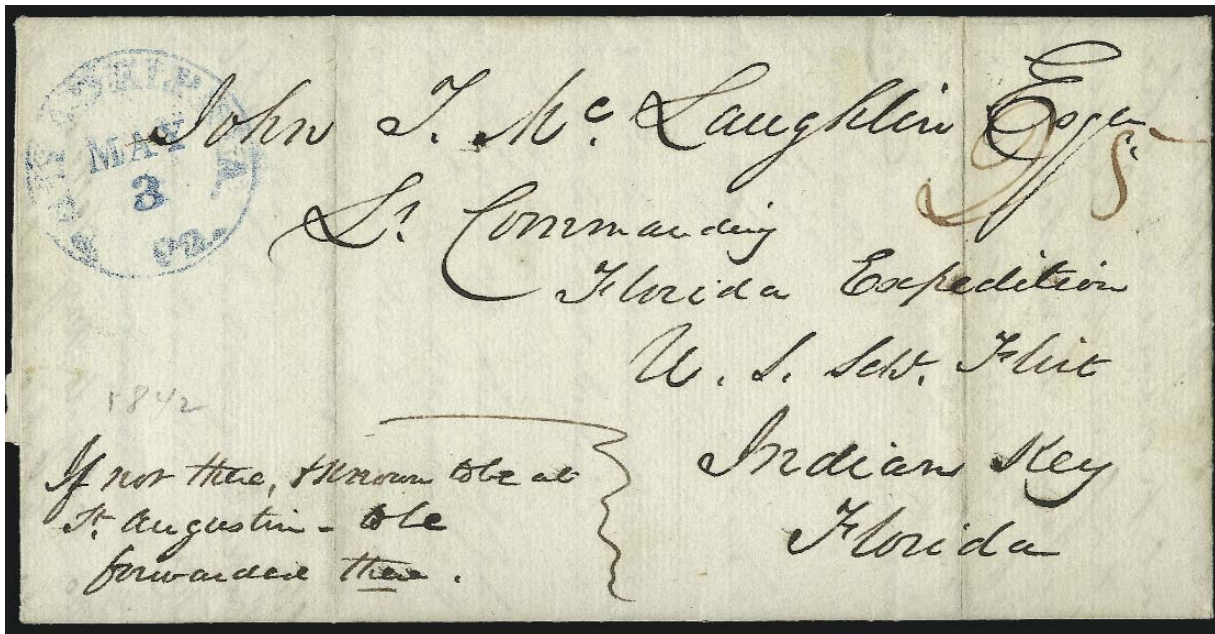 PHILADELPHIA
MAY
3
Pa.
John T. Mc. Laughlin Esqr.
25
Lt. Commanding
Florida Expedition
U. S. Schr. Flirt
Indian Key
Florida
1842
If not there, & known to be at
St. Augustin - to be
forwarded there.